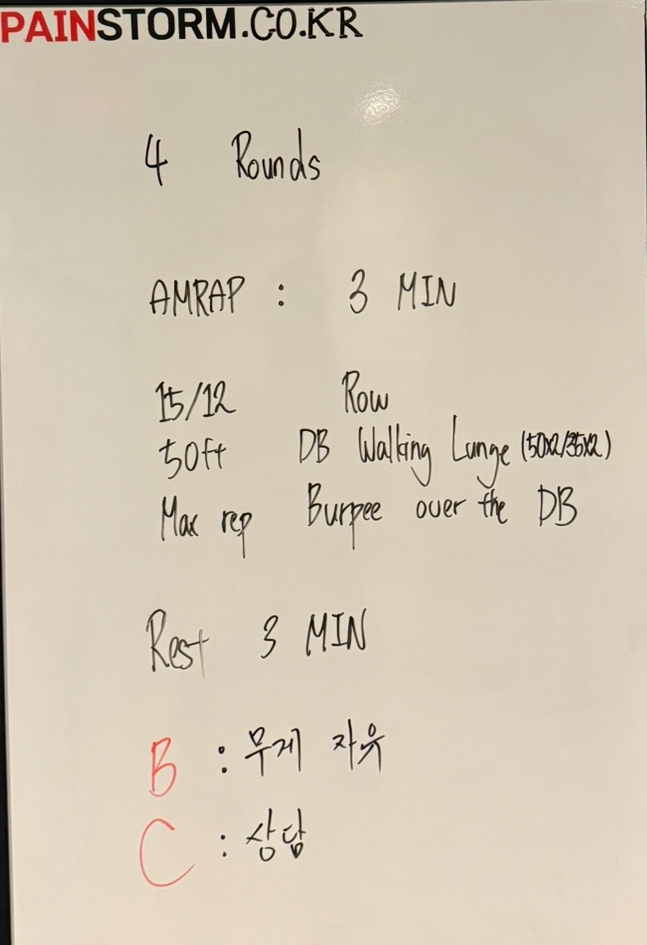 PAINSTORM.CO.KR
4 Rounds
AMRAP : 3 MIN
15/12 Row
50ft DB Walking Lunge (50x2/35x2)
Max rep Burpee over the DB
Rest 3 MIN
B : 무게 자유
C : 상담